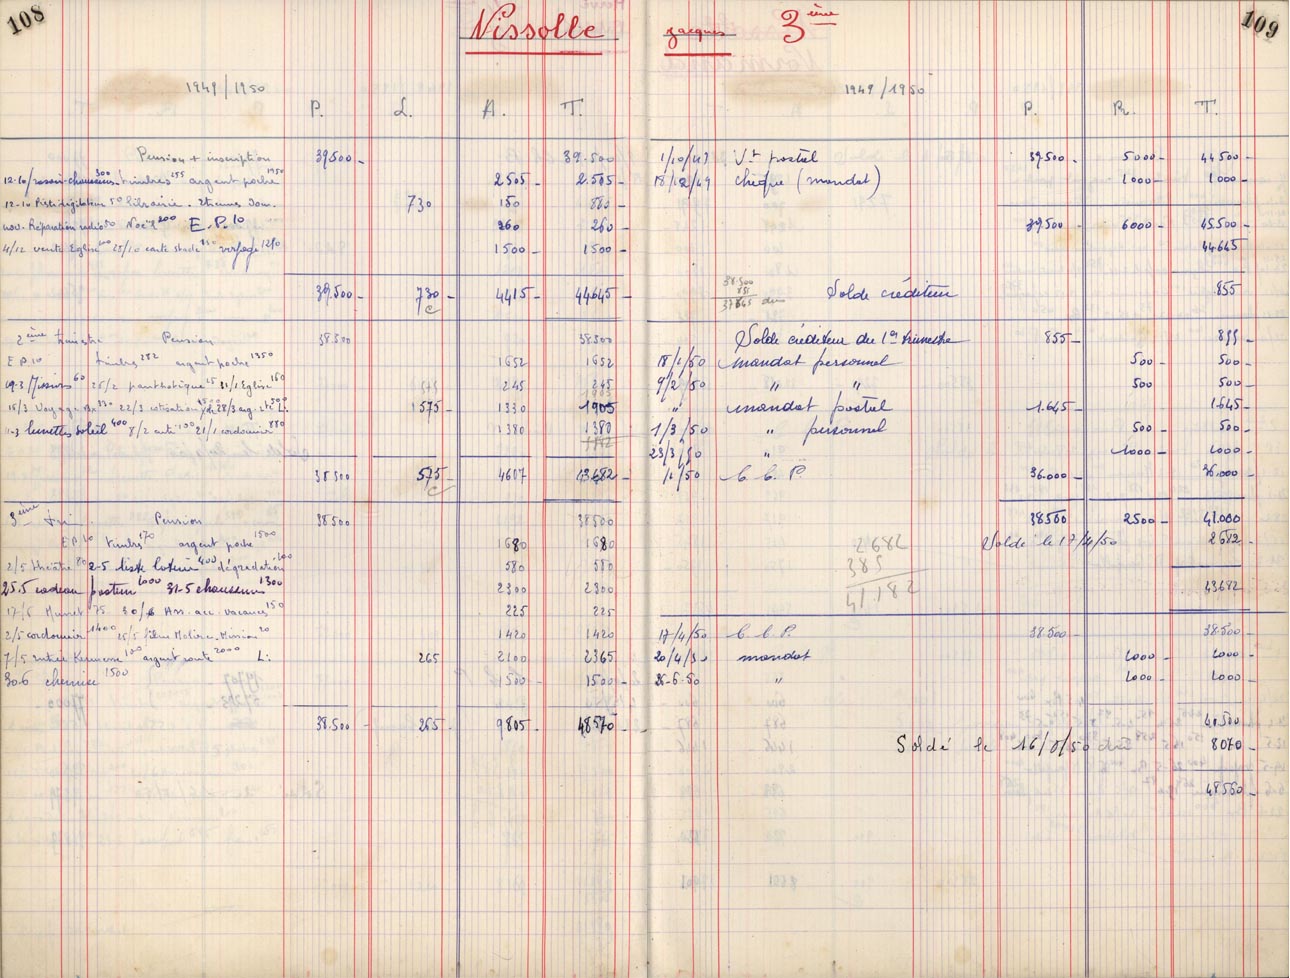 108
Nissolle
Jacques 3ème
109
1949/1950
P. L. A. T.
Pension + inscription 39500 - 39.500
12-10/ 300 timbres 255 argent poche 1950 2505 - 2.505 -
12-10 50 librairie. 730 150 880 -
nov. Réparation radio 50 Noël 200 E.P. 10 260 260 -
4/12 vente Eglise 28/10 carte stade 1500 - 1500 -
39.500 - 730 - 4415 - 44645 -
c
2ème trimestre Pension 38.500 38500
E P. 10 timbres 282 argent poche 1350 1652 1652
19-3 Missions 60 25/2 25 31/1 Eglise 160 245 245
15/3 Voyage 22/3 cotisation 28/3 L. 575 - 1330 1905
lunettes soleil 400 8/2 carte 100 21/1 cordonnier 880 1380 1380
38500 575 - 4607 43682 -
c
3ème tri. Pension 38500 38500
E P. 10 timbres 170 argent poche 1500 1680 1680
2/5 théâtre 80 2-5 liste loterie 400 dégradation 100 580 580
25.5 cadeau pasteur 1000 31-5 chaussures 1300 2300 2300
17/6 75 30/6 Ass. acc. vacances 150 225 225
2/5 cordonnier 1400 25/5 films Molière. Mission 20 1420 1420
7/5 entrée Kermesse 100 argent route 2000 L: 265 2100 2365
30.6 chemise 1500 1500 - 1500 -
38.500 - 265 - 9805 - 48570 -
1949/1950
P. R. T.
1/10/49 Vt postal 39.500 - 5000 - 44500 -
18/12/49 chèque (mandat) 1000 - 1000 -
39.500 - 6000 - 45.500 -
44645
38.500
855
37645 dus
Solde créditeur 855
Solde créditeur du 1er trimestre 855 - 855 -
18/1/50 mandat personnel 500 - 500 -
9/2/50 " " 500 500 -
" mandat postal 1.645 - 1645 -
1/3/50 " personnel 500 - 500 -
23/3/50 " 1000 - 1000 -
1/50 C. C. P. 36.000 - 36.000 -
38500 2500 - 41.000
Soldé le 17/4/50 2682 -
2682
385
41.182
43682 -
17/4/50 C. C. P. 38.500 - 38.500 -
20/4/50 mandat 1000 - 1000 -
26-6-50 " 1000 - 1000 -
40.500
Soldé le 16/8/50 dûs 8070 -
48560 -